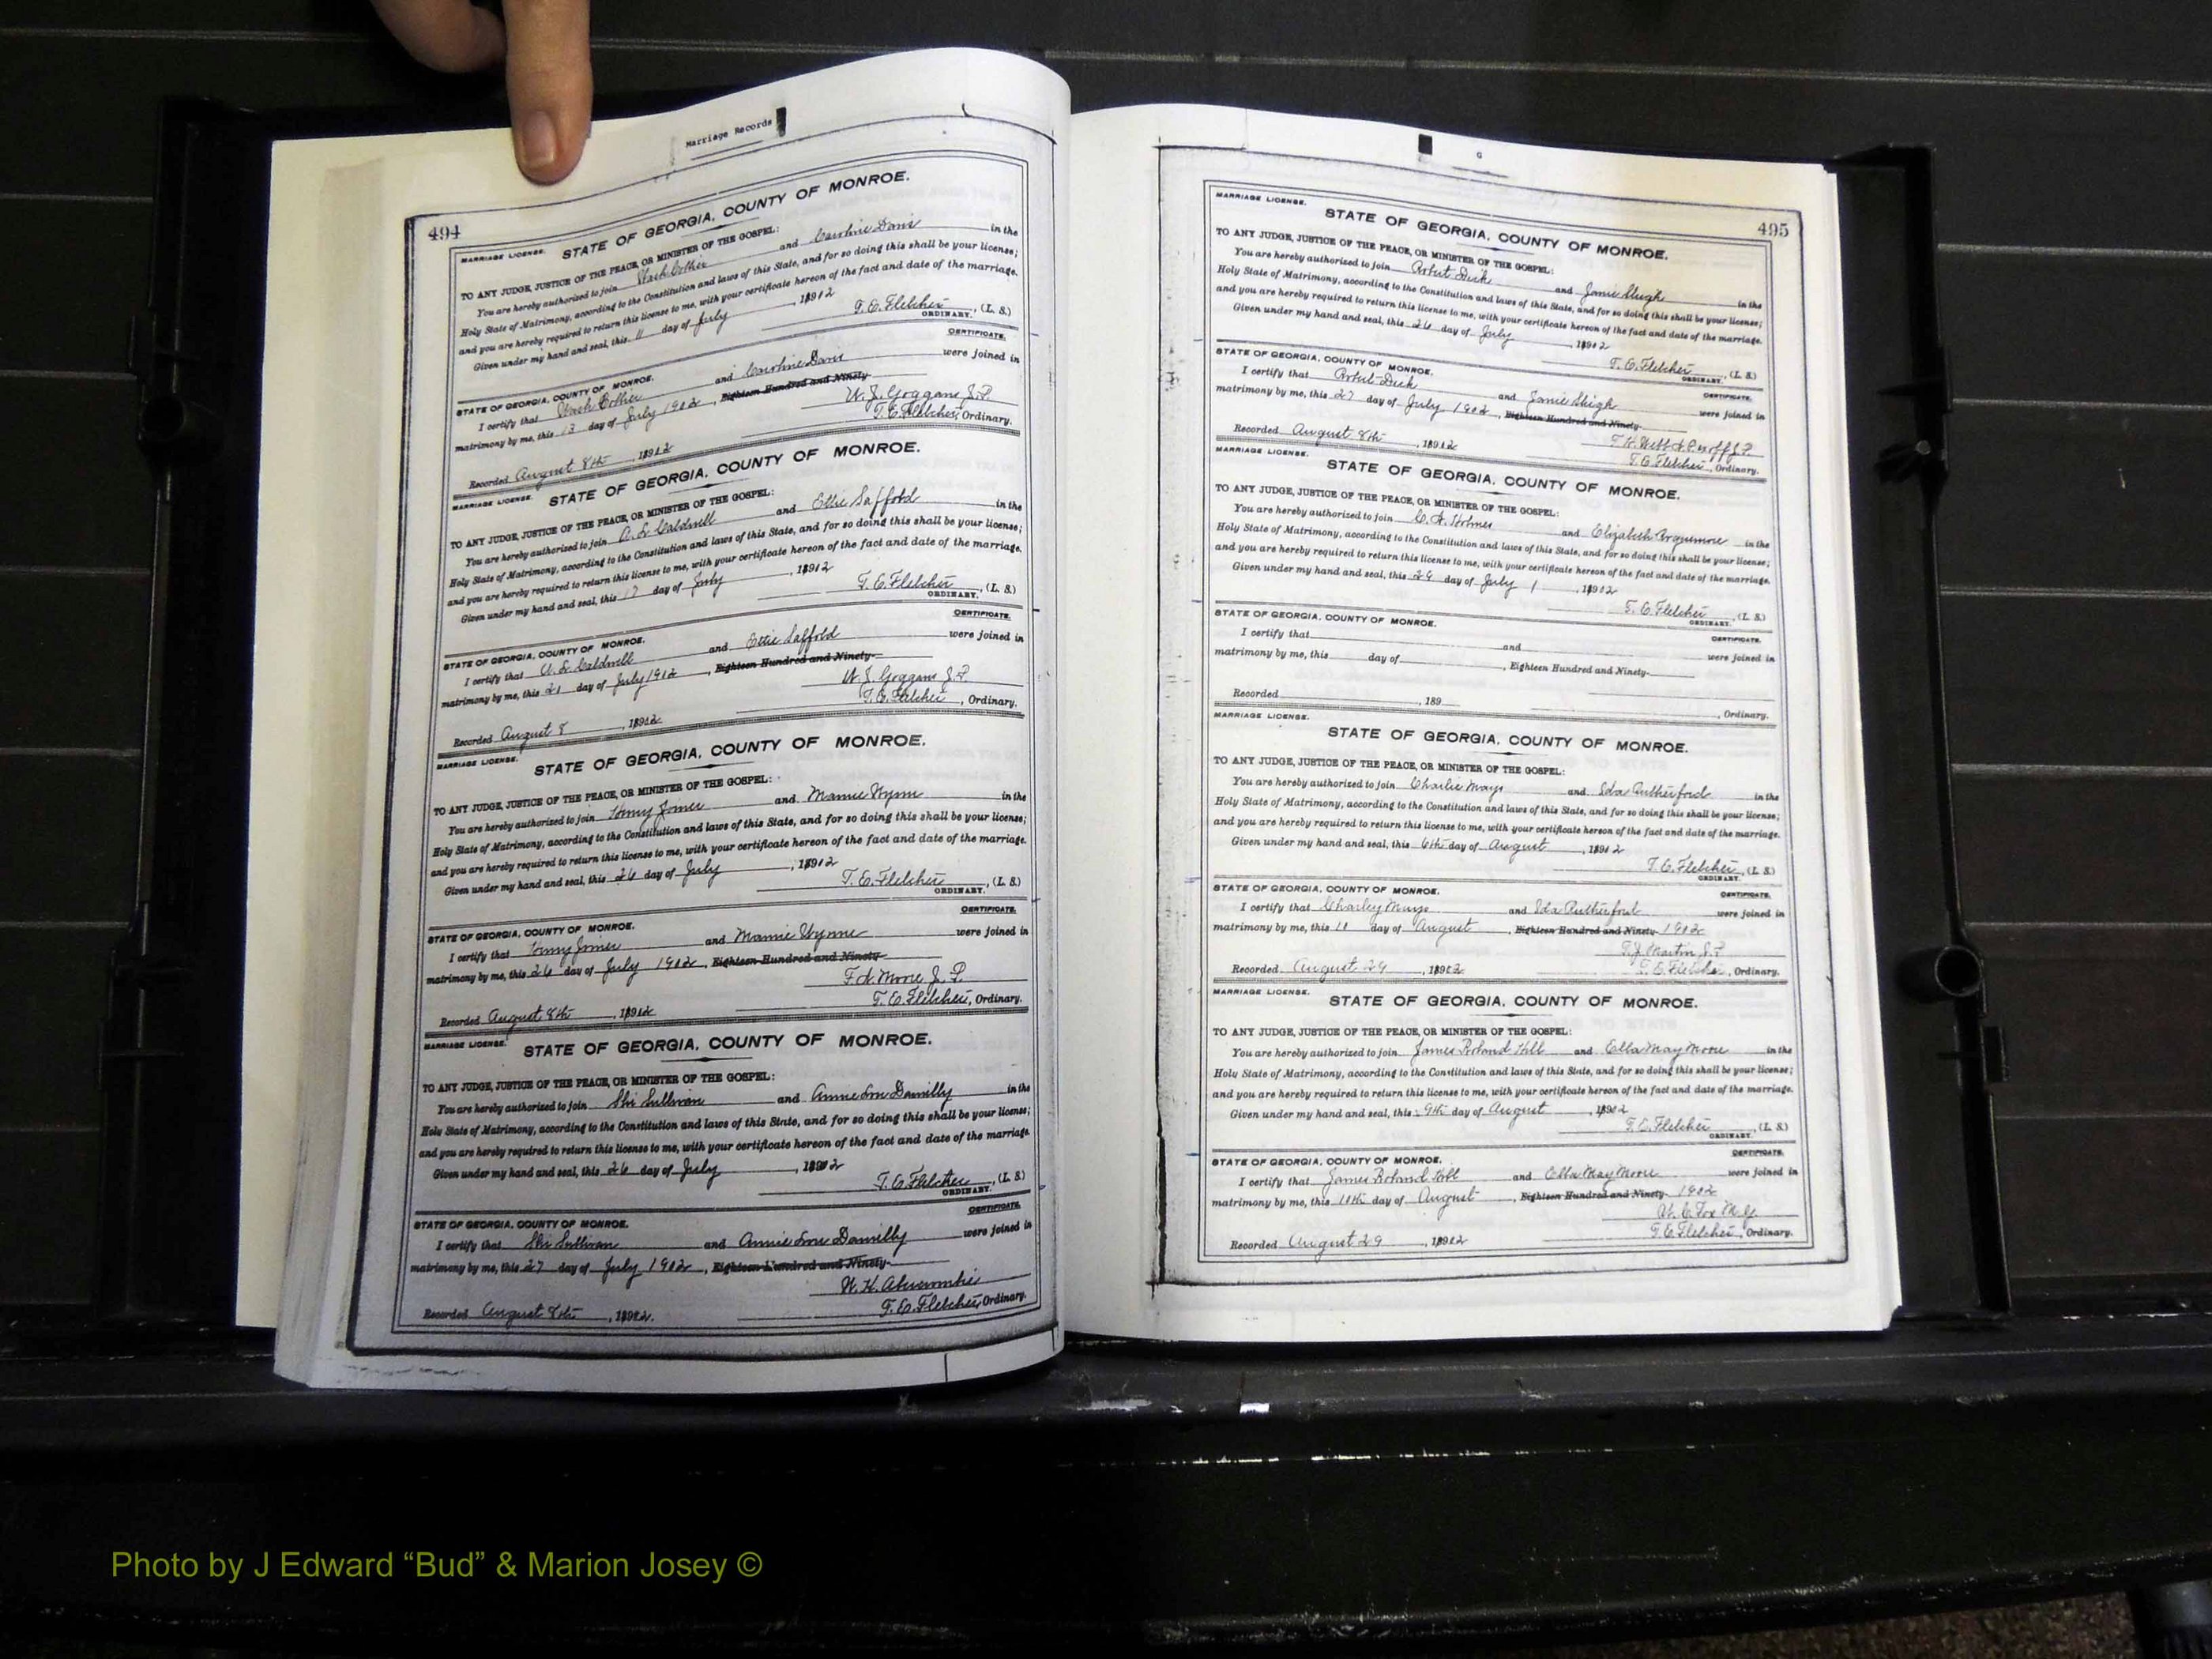 Marriage Records
494
MARRIAGE LICENSE.
STATE OF GEORGIA, COUNTY OF MONROE.
TO ANY JUDGE, JUSTICE OF THE PEACE, OR MINISTER OF THE GOSPEL:
You are hereby authorized to join Wash and Caroline Davis in the
Holy State of Matrimony, according to the Constitution and laws of this State, and for so doing this shall be your license;
and you are hereby required to return this license to me, with your certificate hereon of the fact and date of the marriage.
Given under my hand and seal, this 11 day of July, 1902
T. E. Fletcher, (L. S.)
ORDINARY.
CERTIFICATE.
STATE OF GEORGIA, COUNTY OF MONROE.
I certify that Wash and Caroline Davis were joined in
matrimony by me, this 13 day of July 1902, Eighteen Hundred and Ninety-
W. J. Goggans J. P.
Recorded August 8th, 1902 T. E. Fletcher, Ordinary.
MARRIAGE LICENSE.
STATE OF GEORGIA, COUNTY OF MONROE.
TO ANY JUDGE, JUSTICE OF THE PEACE, OR MINISTER OF THE GOSPEL:
You are hereby authorized to join A. L. Caldwell and Ettie Saffold in the
Holy State of Matrimony, according to the Constitution and laws of this State, and for so doing this shall be your license;
and you are hereby required to return this license to me, with your certificate hereon of the fact and date of the marriage.
Given under my hand and seal, this 17 day of July, 1902
T. E. Fletcher, (L. S.)
ORDINARY.
CERTIFICATE.
STATE OF GEORGIA, COUNTY OF MONROE.
I certify that A. L. Caldwell and Ettie Saffold were joined in
matrimony by me, this 21 day of July 1902, Eighteen Hundred and Ninety-
W. J. Goggans J. P.
Recorded August 8, 1902 T. E. Fletcher, Ordinary.
MARRIAGE LICENSE.
STATE OF GEORGIA, COUNTY OF MONROE.
TO ANY JUDGE, JUSTICE OF THE PEACE, OR MINISTER OF THE GOSPEL:
You are hereby authorized to join and Mamie Wynn in the
Holy State of Matrimony, according to the Constitution and laws of this State, and for so doing this shall be your license;
and you are hereby required to return this license to me, with your certificate hereon of the fact and date of the marriage.
Given under my hand and seal, this 26 day of July, 1902
T. E. Fletcher, (L. S.)
ORDINARY.
CERTIFICATE.
STATE OF GEORGIA, COUNTY OF MONROE.
I certify that and Mamie Wynne were joined in
matrimony by me, this 26 day of July 1902, Eighteen Hundred and Ninety-
Moore J. P.
Recorded August 8th, 1902 T. E. Fletcher, Ordinary.
MARRIAGE LICENSE.
STATE OF GEORGIA, COUNTY OF MONROE.
TO ANY JUDGE, JUSTICE OF THE PEACE, OR MINISTER OF THE GOSPEL:
You are hereby authorized to join Sullivan and Annie Lou Damilly in the
Holy State of Matrimony, according to the Constitution and laws of this State, and for so doing this shall be your license;
and you are hereby required to return this license to me, with your certificate hereon of the fact and date of the marriage.
Given under my hand and seal, this 26 day of July, 1902
T. E. Fletcher, (L. S.)
ORDINARY.
CERTIFICATE.
STATE OF GEORGIA, COUNTY OF MONROE.
I certify that Sullivan and Annie Lou Damilly were joined in
matrimony by me, this 27 day of July 1902, Eighteen Hundred and Ninety-
W. H. Abercrombie
Recorded August 8th, 1902. T. E. Fletcher, Ordinary.
495
MARRIAGE LICENSE.
STATE OF GEORGIA, COUNTY OF MONROE.
TO ANY JUDGE, JUSTICE OF THE PEACE, OR MINISTER OF THE GOSPEL:
You are hereby authorized to join and Janie Sleigh in the
Holy State of Matrimony, according to the Constitution and laws of this State, and for so doing this shall be your license;
and you are hereby required to return this license to me, with your certificate hereon of the fact and date of the marriage.
Given under my hand and seal, this 26 day of July, 1902
T. E. Fletcher, (L. S.)
ORDINARY.
CERTIFICATE.
STATE OF GEORGIA, COUNTY OF MONROE.
I certify that and Janie Sleigh were joined in
matrimony by me, this 27 day of July 1902, Eighteen Hundred and Ninety-
Recorded August 8th, 1902 T. E. Fletcher, Ordinary.
MARRIAGE LICENSE.
STATE OF GEORGIA, COUNTY OF MONROE.
TO ANY JUDGE, JUSTICE OF THE PEACE, OR MINISTER OF THE GOSPEL:
You are hereby authorized to join C. A. Holmes and Elizabeth in the
Holy State of Matrimony, according to the Constitution and laws of this State, and for so doing this shall be your license;
and you are hereby required to return this license to me, with your certificate hereon of the fact and date of the marriage.
Given under my hand and seal, this 29 day of July, 1902
T. E. Fletcher, (L. S.)
ORDINARY.
CERTIFICATE.
STATE OF GEORGIA, COUNTY OF MONROE.
I certify that and were joined in
matrimony by me, this day of , Eighteen Hundred and Ninety-
Recorded , 189 , Ordinary.
MARRIAGE LICENSE.
STATE OF GEORGIA, COUNTY OF MONROE.
TO ANY JUDGE, JUSTICE OF THE PEACE, OR MINISTER OF THE GOSPEL:
You are hereby authorized to join Charlie Mays and Ida Rutherford in the
Holy State of Matrimony, according to the Constitution and laws of this State, and for so doing this shall be your license;
and you are hereby required to return this license to me, with your certificate hereon of the fact and date of the marriage.
Given under my hand and seal, this 6th day of August, 1902
T. E. Fletcher, (L. S.)
ORDINARY.
CERTIFICATE.
STATE OF GEORGIA, COUNTY OF MONROE.
I certify that Charley Mays and Ida Rutherford were joined in
matrimony by me, this 10 day of August, Eighteen Hundred and Ninety- 1902
T. J. Martin J. P.
Recorded August 29, 1902 T. E. Fletcher, Ordinary.
MARRIAGE LICENSE.
STATE OF GEORGIA, COUNTY OF MONROE.
TO ANY JUDGE, JUSTICE OF THE PEACE, OR MINISTER OF THE GOSPEL:
You are hereby authorized to join James Roland Hill and Ella May Moore in the
Holy State of Matrimony, according to the Constitution and laws of this State, and for so doing this shall be your license;
and you are hereby required to return this license to me, with your certificate hereon of the fact and date of the marriage.
Given under my hand and seal, this 9th day of August, 1902
T. E. Fletcher, (L. S.)
ORDINARY.
CERTIFICATE.
STATE OF GEORGIA, COUNTY OF MONROE.
I certify that James Roland Hill and Ella May Moore were joined in
matrimony by me, this 10th day of August, Eighteen Hundred and Ninety- 1902
W. C. Fox M. G.
Recorded August 29, 1902 T. E. Fletcher, Ordinary.
Photo by J Edward “Bud” & Marion Josey ©